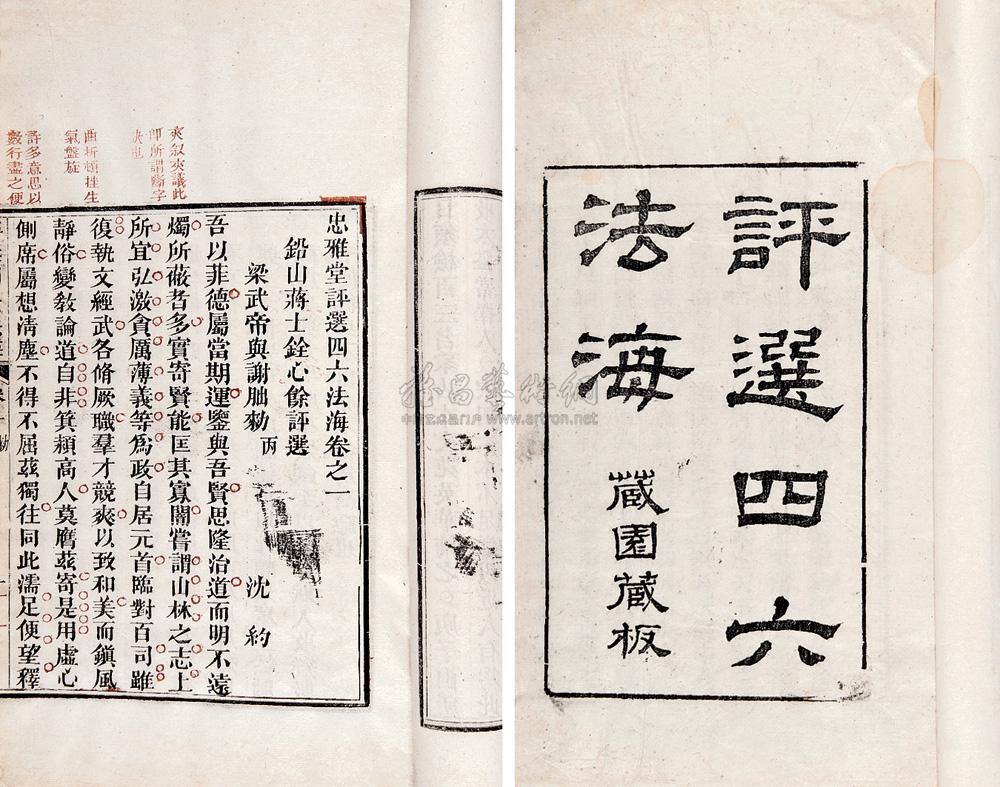 評選四六
法海
藏園藏板
忠雅堂評選四六法海卷之一
鉛山蔣士銓心餘評選
梁武帝與謝朏勑 丙 沈約
吾以菲德屬當期運鑒與吾賢思隆治道而明不遠
燭所蔽者多實寄賢能匡其寡闇嘗謂山林之志上
所宜弘激貪厲薄義等爲政自居元首臨對百司雖
復執文經武各脩厥職羣才競爽以致和美而鎭風
靜俗變敎論道自非箕潁高人莫膺茲寄是用虛心
側席屬想淸塵不得不屈茲獨往同此濡足便望釋
夾叙夾議此
即所謂斷字
訣也
曲折頓挫生
氣盤旋
許多意思以
數行盡之便
www.artron.net